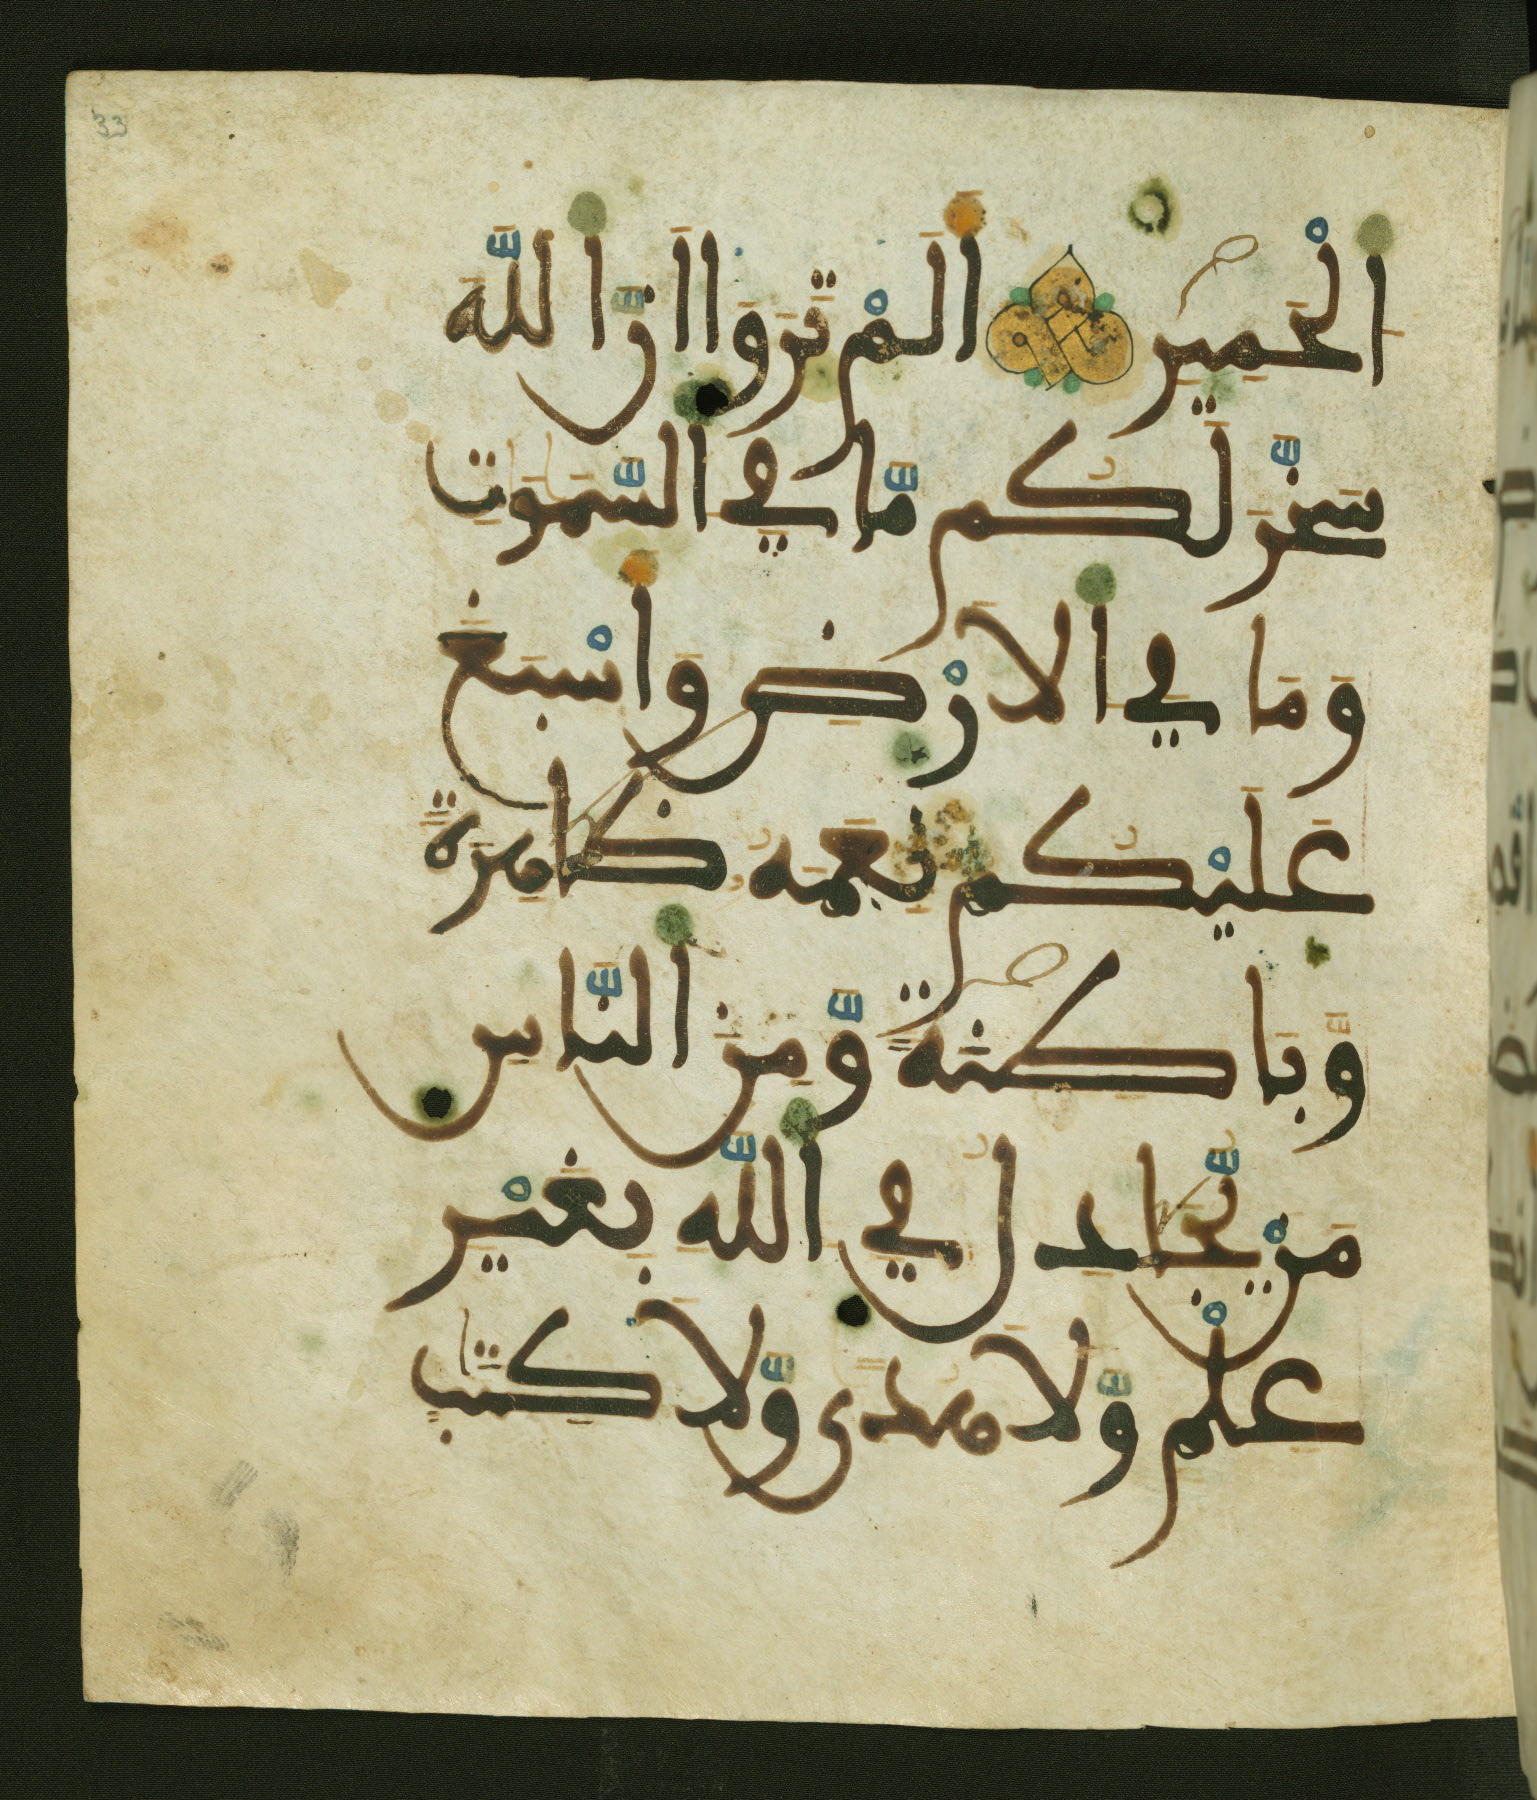 33
اَ۬لْحَمِيرِ أَلَمْ تَرَوَاْ اَنَّ اَ۬للَّهَ
سَخَّرَ لَكُم مَّا فِے اِ۬لسَّمَٰوَٰتِ
وَمَا فِے اِ۬لَارْضِ وَأَسْبَغَ
عَلَيْكُمْ نِعَمَهُۥ ظَٰهِرَةٗ
وَبَاطِنَةٗ وَّمِنَ اَ۬لنَّاسِ
مَنْ يُّجَٰدِلُ فِے اِ۬للَّهِ بِغَيْرِ
عِلْمٖ وَّلَا هُدىٗ وَّلَا كِتَٰبٖ